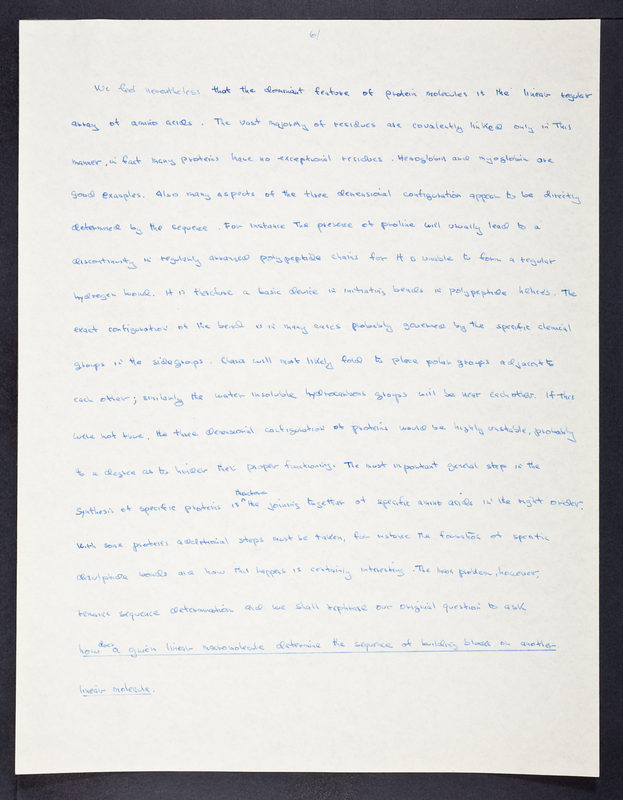 6/
We find nevertheless that the dominant feature of protein molecules is the linear regular
array of amino acids. The vast majority of residues are covalently linked only in this
manner, in fact many proteins have no exceptional residues. Hemoglobin and myoglobin are
good examples. Also many aspects of the three dimensional configuration appear to be directly
determined by the sequence. For instance the presence of proline will usually lead to a
discontinuity in regularly arranged polypeptide chains for it is unable to form a regular
hydrogen bond. It is therefore a basic device in initiating bends in polypeptide helices. The
exact configuration of the bend is in many cases probably governed by the specific chemical
groups in the sidegroups. Chains will most likely fold to place polar groups adjacent to
each other; similarly the water insoluble hydrocarbons groups will be near each other. If this
were not true, the three dimensional configuration of proteins would be highly unstable, probably
to a degree as to hinder their proper functioning. The most important general step in the
synthesis of specific proteins is therefore the joining together of specific amino acids in the right order.
With some proteins additional steps must be taken, for instance the formation of specific
disulphide bonds and how this happens is certainly interesting. The main problem, however,
remains sequence determination and we shall rephrase our original question to ask
how does a given linear macromolecule determine the sequence of building blocks on another
linear molecule.